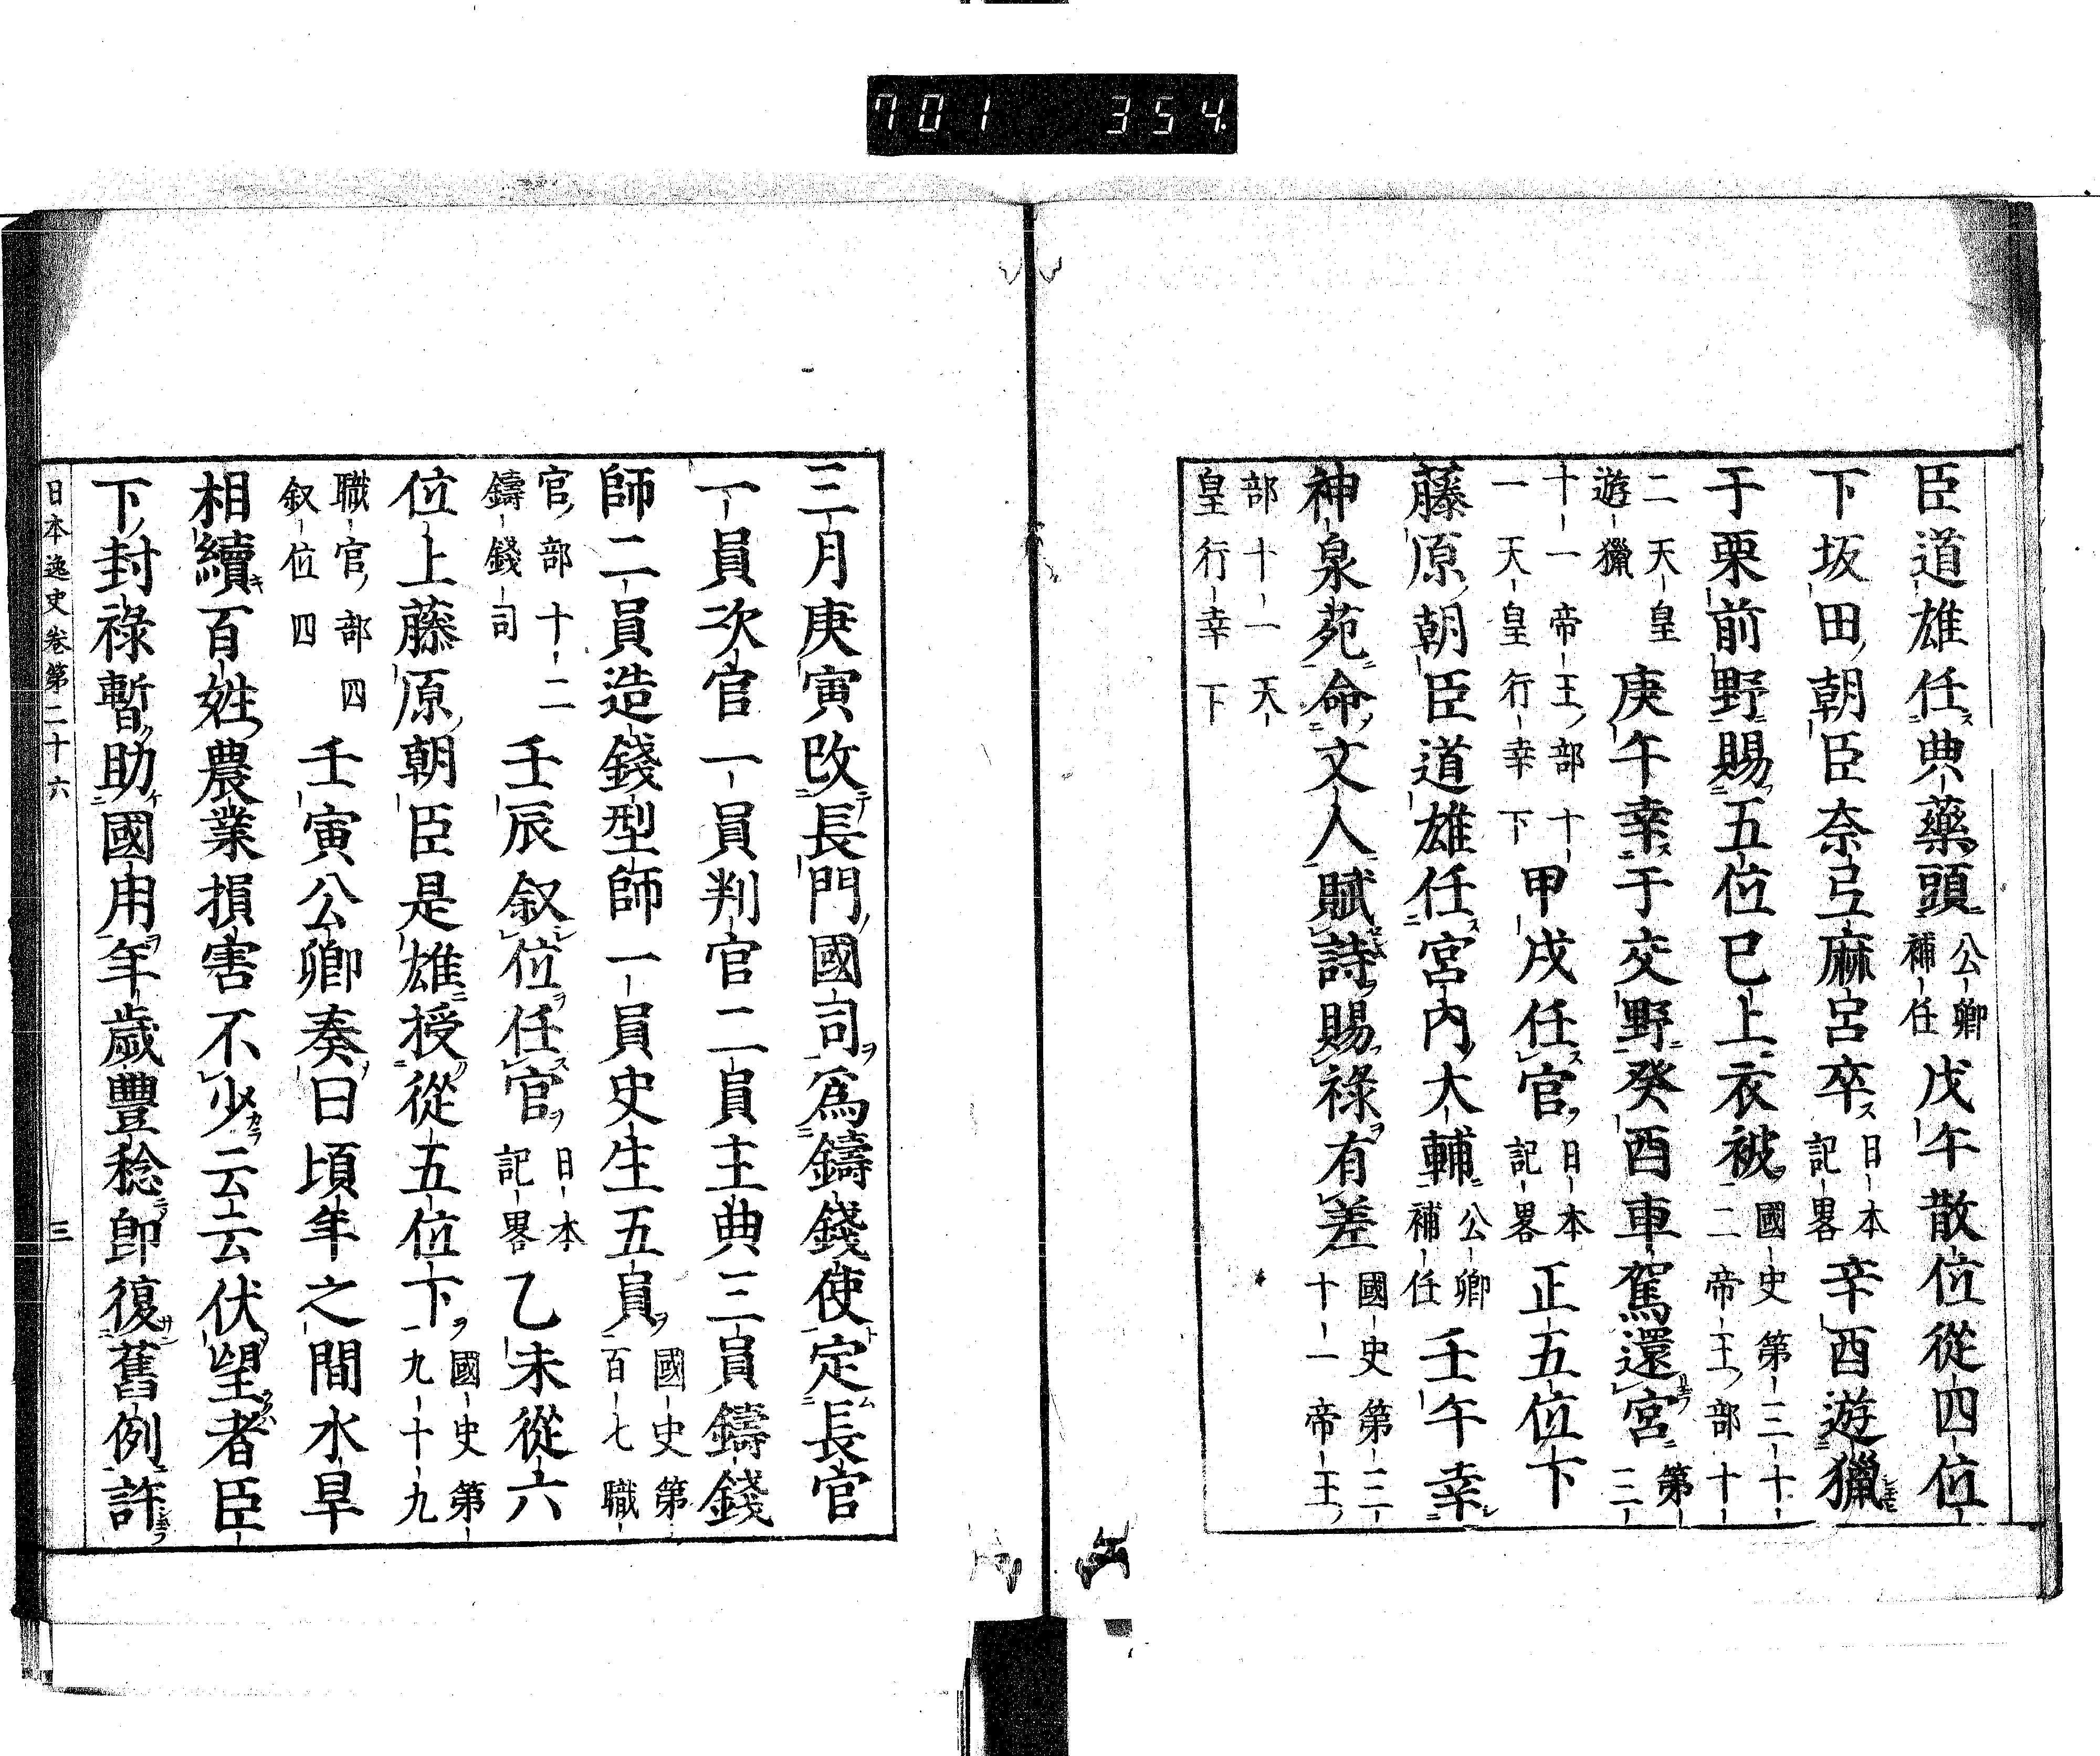 701 354
臣道雄任典藥頭公卿補任戊午散位從四位
下坂田朝臣奈弖麻呂卒日本記畧辛酉遊獵
于栗前野賜五位已上衣被國史第三十二帝王部十
二天皇遊獵庚午幸于交野癸酉車駕還宮第三
十一帝王部十一天皇行幸下甲戌任官日本記畧正五位下
藤原朝臣道雄任宮內大輔公卿補任壬午幸
神泉苑命文人賦詩賜祿有差國史第三十一帝王
部十一天皇行幸下
三月庚寅改長門國司爲鑄錢使定長官
一員次官一員判官二員主典三員鑄錢
師二員造錢型師一員史生五員國史第百七職
官部十二鑄錢司壬辰叙位任官日本記畧乙未從六
位上藤原朝臣是雄授從五位下國史第九十九
職官部四叙位四壬寅公卿奏曰頃年之間水旱
相續百姓農業損害不少云云伏望者臣
下封祿暫助國用年歲豐稔卽復舊例許
日本逸史卷第二十六 三